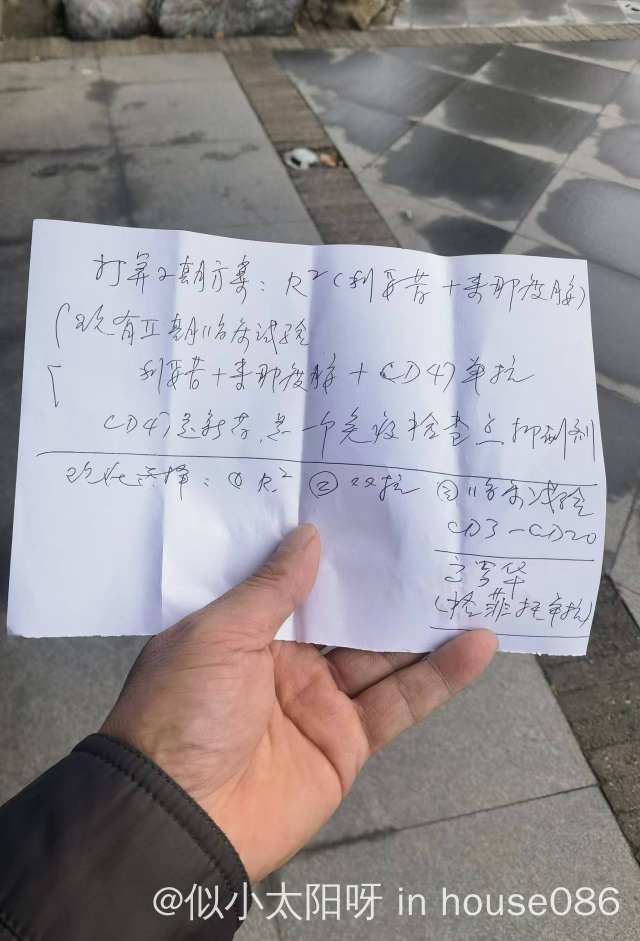 打算2期方案：R²（利妥昔+来那度胺）
现有II期临床试验
利妥昔+来那度胺+CD47单抗
CD47是新药，是一个免疫检查点抑制剂
现在选择：① R² ② 双抗 ③ 临床试验
CD3-CD20
高罗华
（格菲妥单抗）
@似小太阳呀 in house086